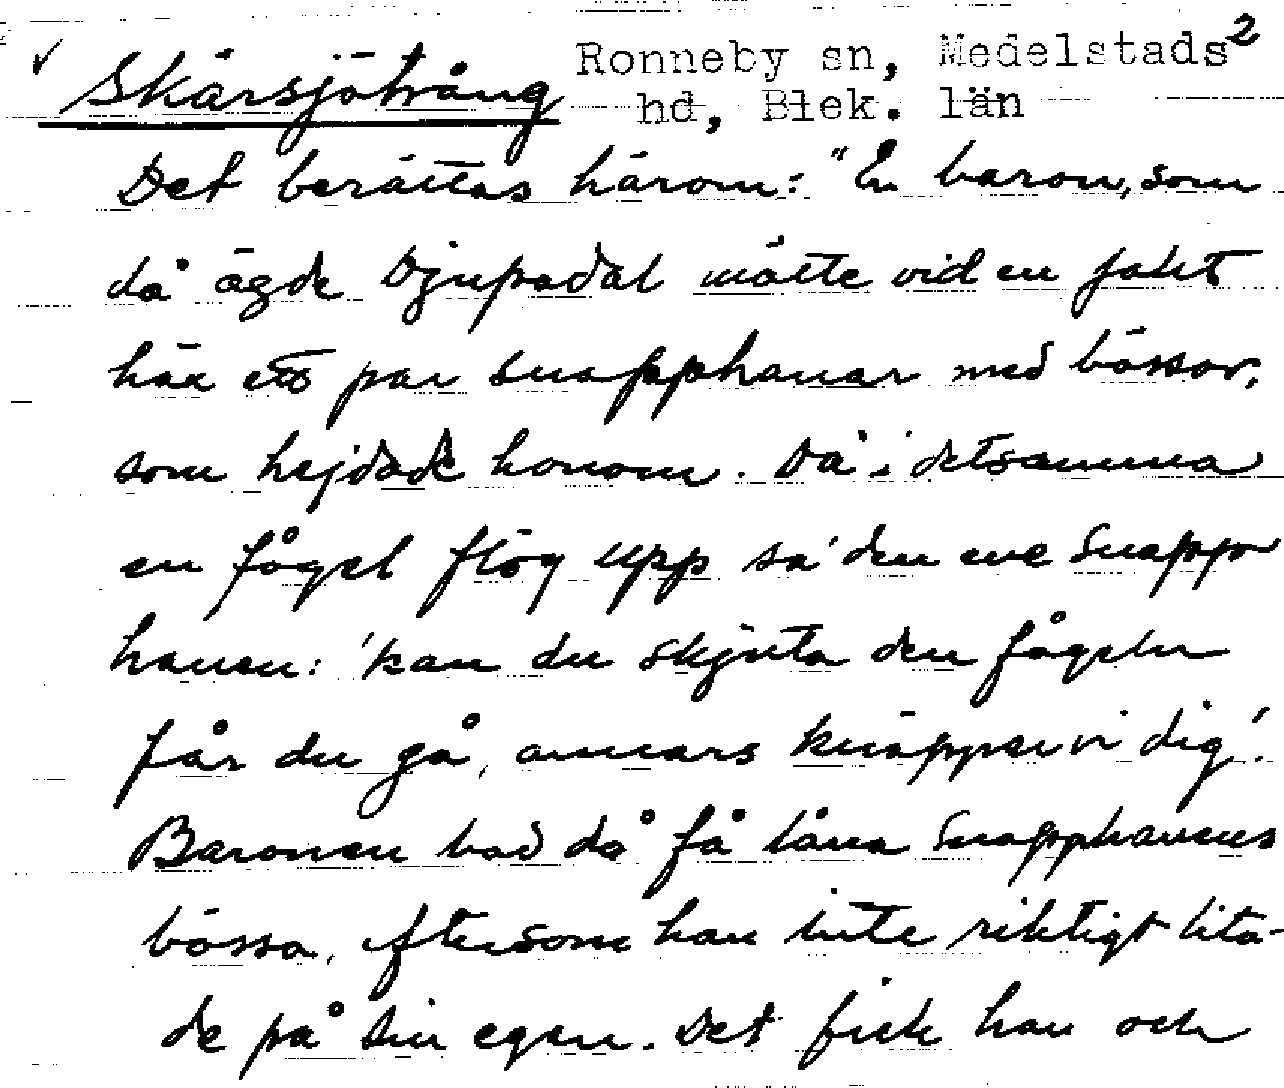 Skärsjötrång Ronneby sn, Medelstads 2
hd, Blek. län
Det berättas härom: "En baron, som
då ägde Djupadal mötte vid en jakt
här ett par snapphanar med bössor,
som hejdade honom. Då i detsamma
en fågel flög upp sa' den ene Snapp-
hanen: 'kan du skjuta den fågeln
får du gå, annars knäpper vi dig'.
Baronen bad då få låna Snapphanens
bössa, eftersom han inte riktigt lita-
de på sin egen. Det fick han och